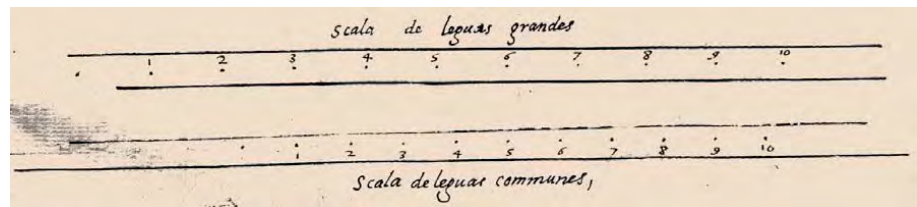 Scala de leguas grandes
1 2 3 4 5 6 7 8 9 10
1 2 3 4 5 6 7 8 9 10
Scala de leguas communes,